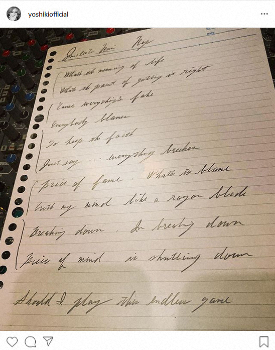 yoshikiofficial
What's the meaning of life
What's the point of getting it right
fake
Everybody blames
faith
Just say everything's broken
Price of fame What's to blame
my mind like a razor blade
Breaking down I'm breaking down
Piece of mind is shuttering down
Should I play this endless game